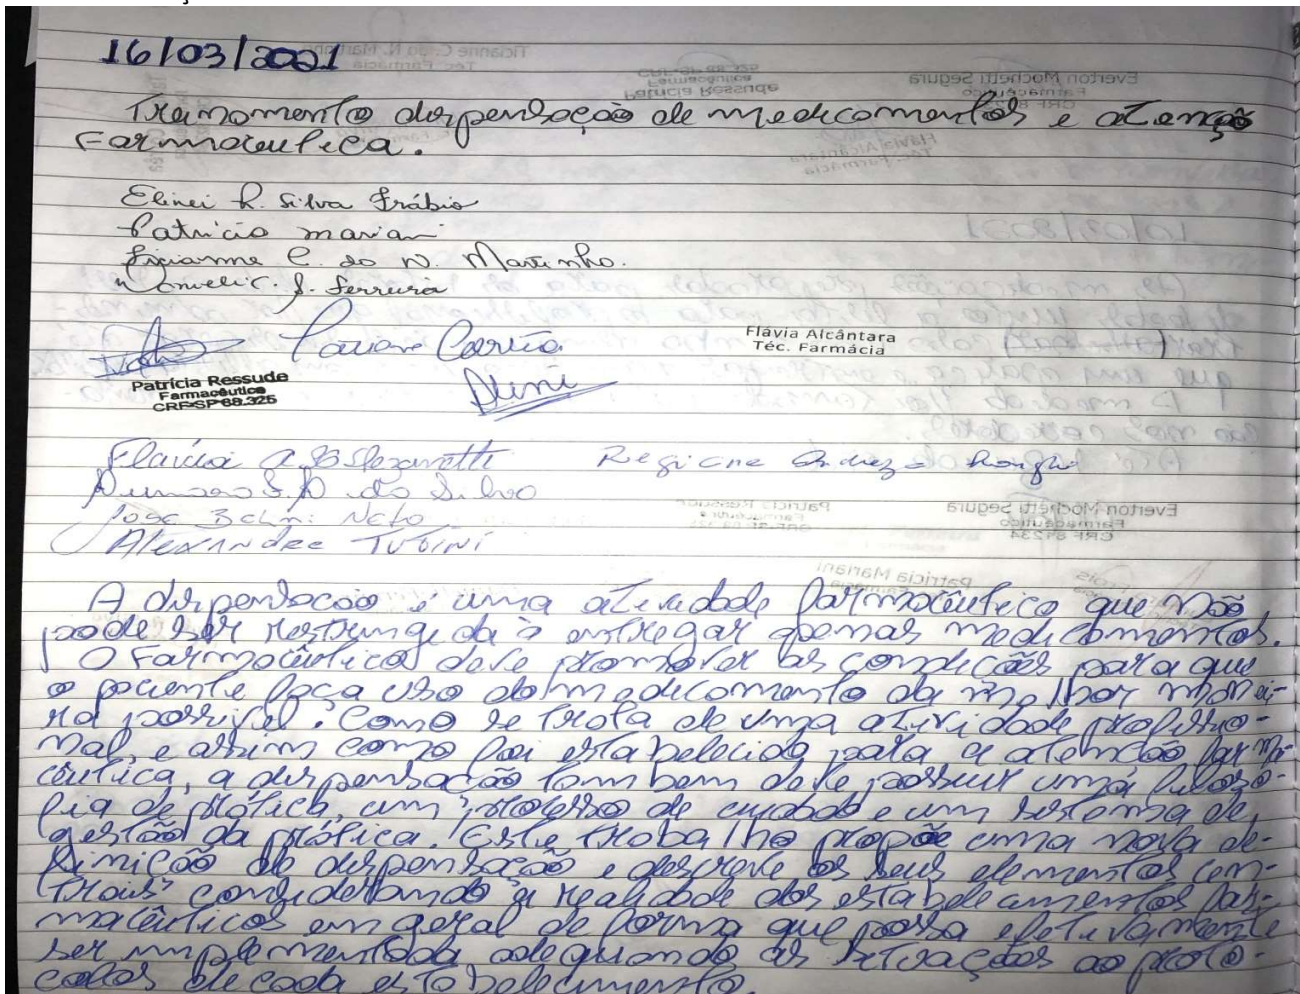 16/03/2021
Treinamento dispensação de medicamentos e atenção
Farmacêutica.
Elinei R. Silva Frábio
Patricia mariani
Ticianne C. do N. Martinho.
S. Ferreira
Flávia Alcântara
Téc. Farmácia
Patrícia Ressude
Farmacêutica
CRF-SP 88.325
Aleni
Flavia A.
Regiane
da Silva
Jose Belini Neto
Alexandre Tubini
A dispensacao é uma atividade farmacêutica que não
pode ser restringida à entregar apenas medicamentos.
O Farmacêutico deve promover as condições para que
o paciente faça uso do medicamento da melhor manei-
ra possível. Como se trata de uma atividade profissio-
nal, e assim como foi estabelecido para a atenção farma-
cêutica, a dispensação tambem deve possuir uma filoso-
fia de prática, um processo de cuidado e um sistema de
gestão da prática. Este trabalho propõe uma nova de-
finição de dispensação e descreve os seus elementos cen-
trais considerando a realidade dos estabelecimentos far-
macêuticos em geral de forma que possa efetivamente
ser implementada adequando as situações ao proto-
colos de cada estabelecimento.